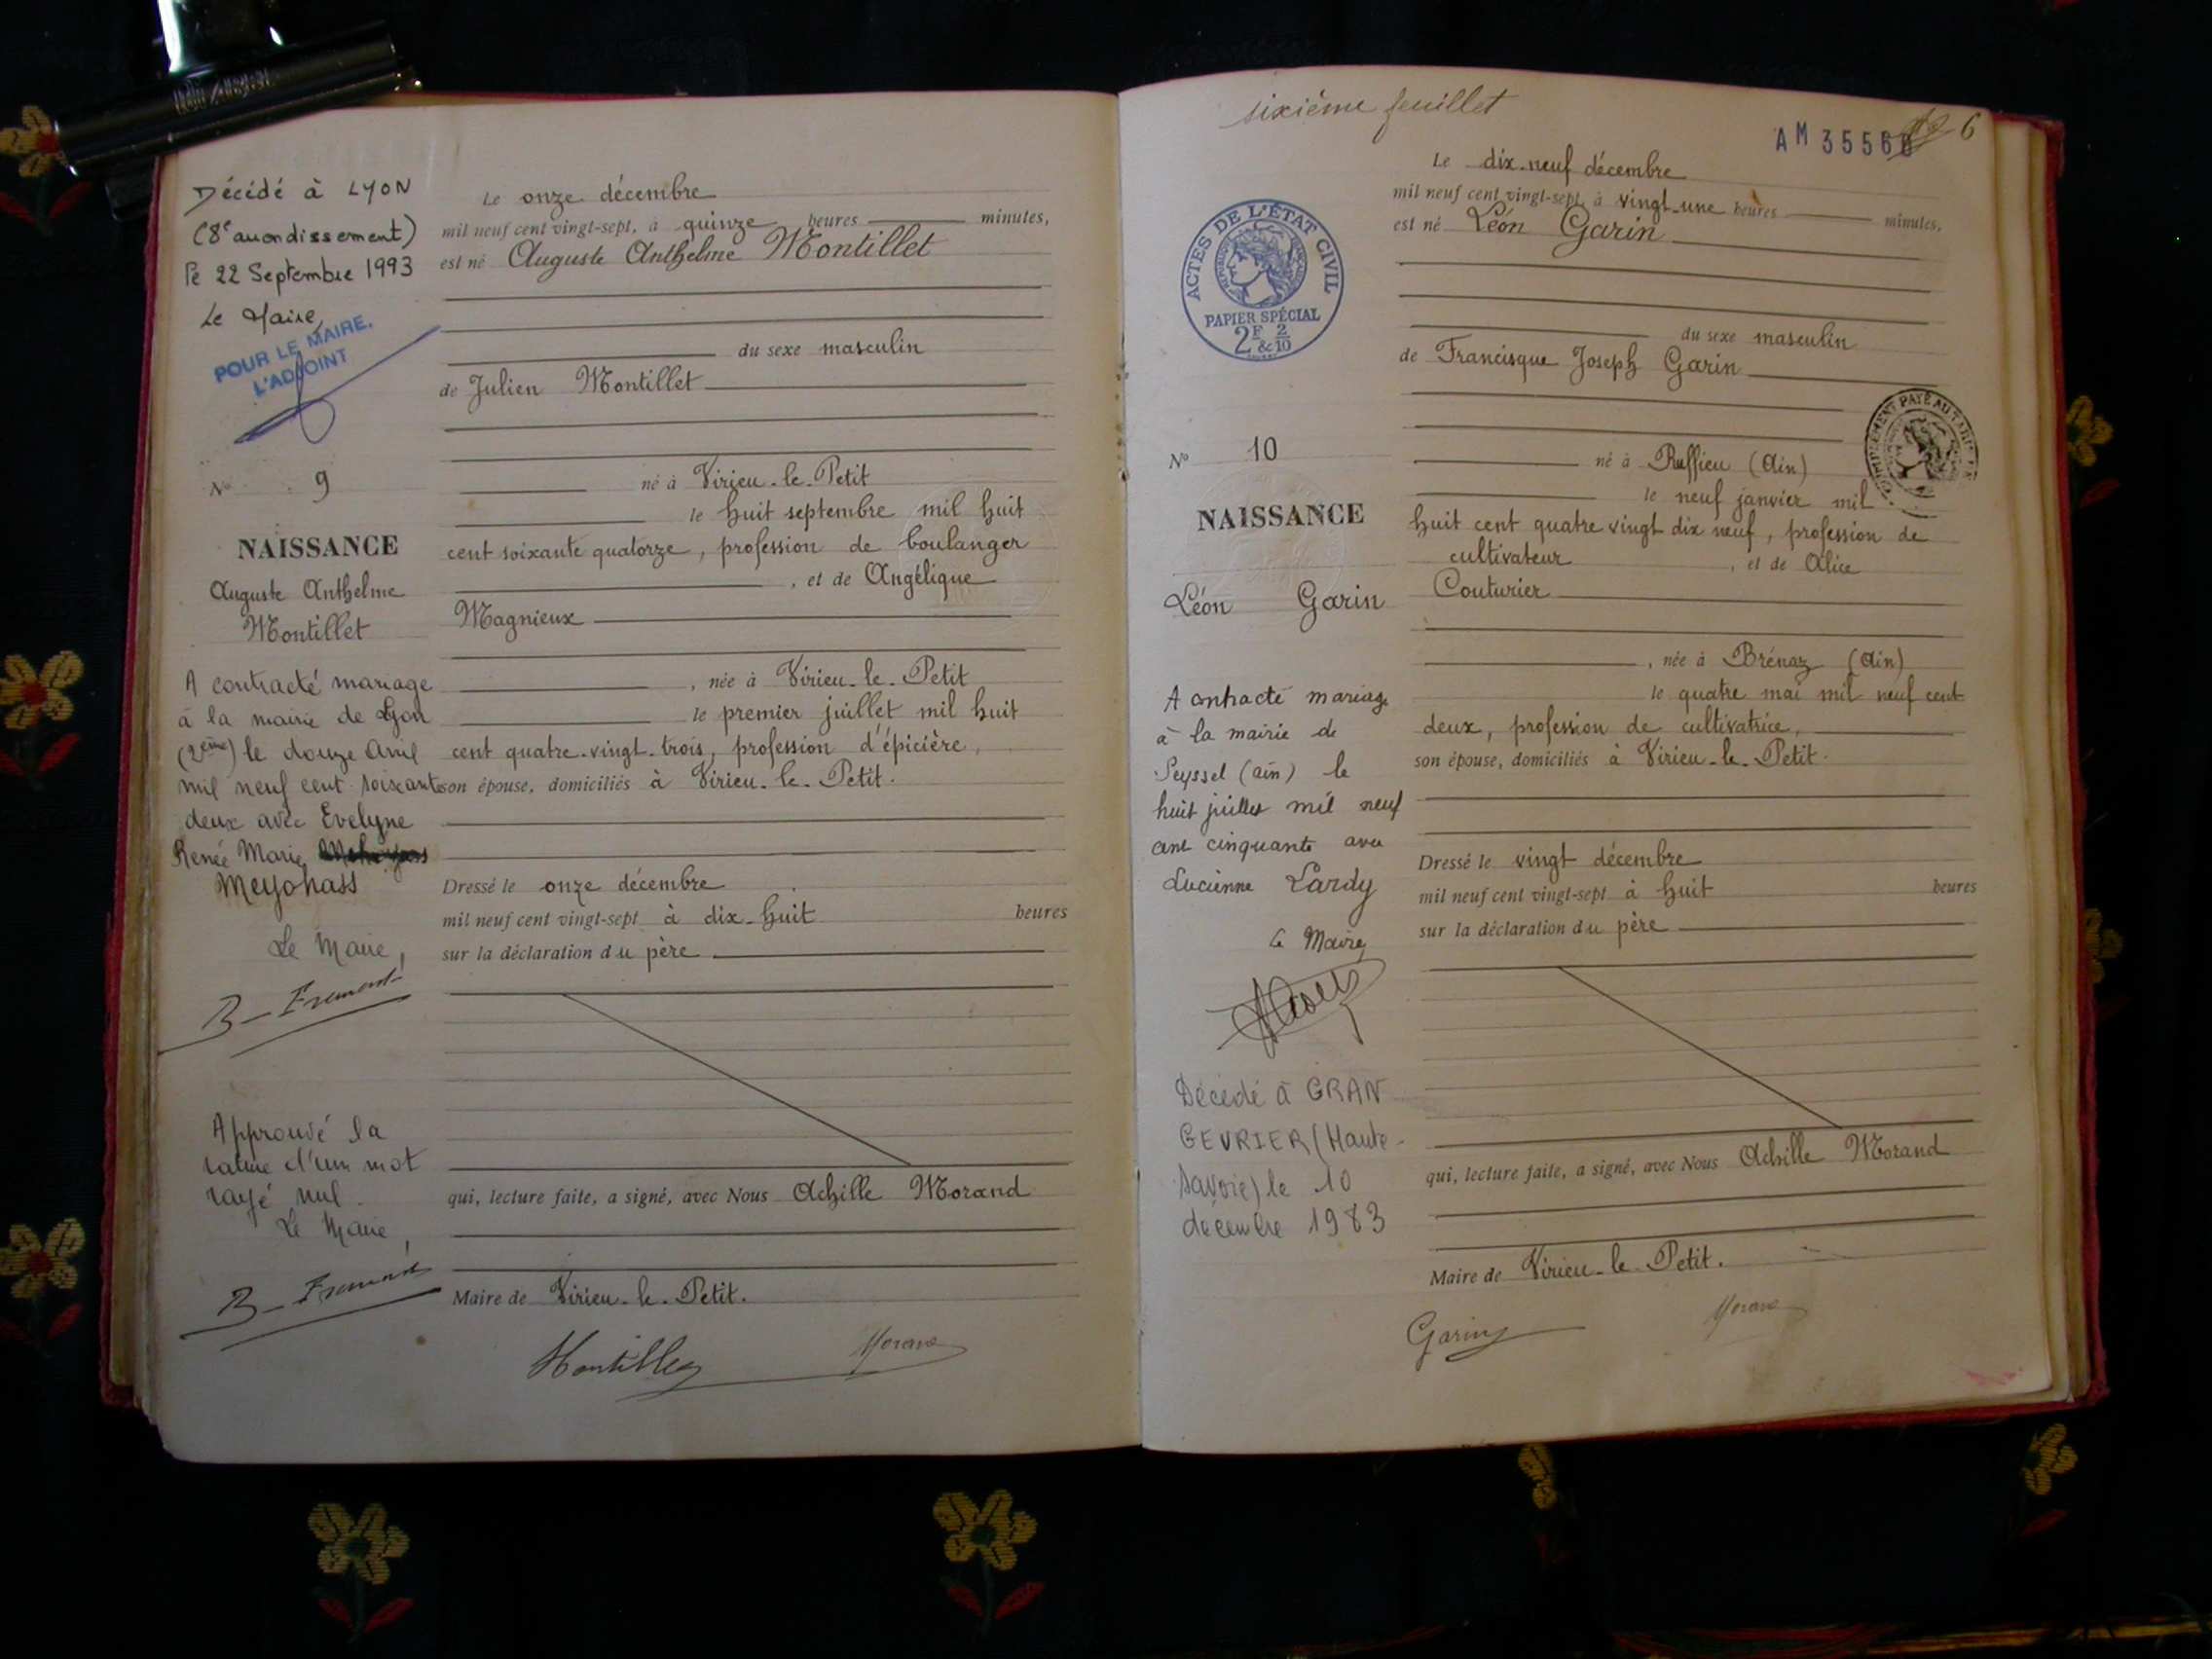 Décédé à LYON
(8e arrondissement)
le 22 Septembre 1993
Le Maire,
POUR LE MAIRE.
L'ADJOINT
N° 9
NAISSANCE
Auguste Anthelme
Montillet
A contracté mariage
à la mairie de Lyon
(2ème) le douze Avril
mil neuf cent soixante
deux avec Evelyne
Renée Marie
Meyohass
Le Maire,
Approuvé la
rature d'un mot
rayé nul.
Le Maire,
Le onze décembre
mil neuf cent vingt-sept, à quinze heures minutes,
est né Auguste Anthelme Montillet
du sexe masculin
de Julien Montillet
né à Virieu-le-Petit
le huit septembre mil huit
cent soixante quatorze, profession de boulanger
, et de Angélique
Magnieux
, née à Virieu-le-Petit
le premier juillet mil huit
cent quatre-vingt-trois, profession d'épicière,
son épouse, domiciliés à Virieu-le-Petit.
Dressé le onze décembre
mil neuf cent vingt-sept à dix-huit heures
sur la déclaration du père
qui, lecture faite, a signé, avec Nous Achille Morand
Maire de Virieu-le-Petit.
Montillet Morand
sixième feuillet
AM 3556 6
ACTES DE L'ÉTAT CIVIL
PAPIER SPÉCIAL
2F & 2/10
N° 10
NAISSANCE
Léon Garin
A contracté mariage
à la mairie de
Seyssel (ain) le
huit juillet mil neuf
cent cinquante avec
Lucienne Lardy
Le Maire,
Décédé à GRAN
GEVRIER (Haute-
Savoie) le 10
décembre 1983
Le dix-neuf décembre
mil neuf cent vingt-sept, à vingt-une heures minutes,
est né Léon Garin
du sexe masculin
de Francisque Joseph Garin
né à Ruffieu (Ain)
le neuf janvier mil
huit cent quatre vingt dix neuf, profession de
cultivateur , et de Alice
Couturier
, née à Brénaz (Ain)
le quatre mai mil neuf cent
deux, profession de cultivatrice,
son épouse, domiciliés à Virieu-le-Petit.
Dressé le vingt décembre
mil neuf cent vingt-sept à huit heures
sur la déclaration du père
qui, lecture faite, a signé, avec Nous Achille Morand
Maire de Virieu-le-Petit.
Garin Morand